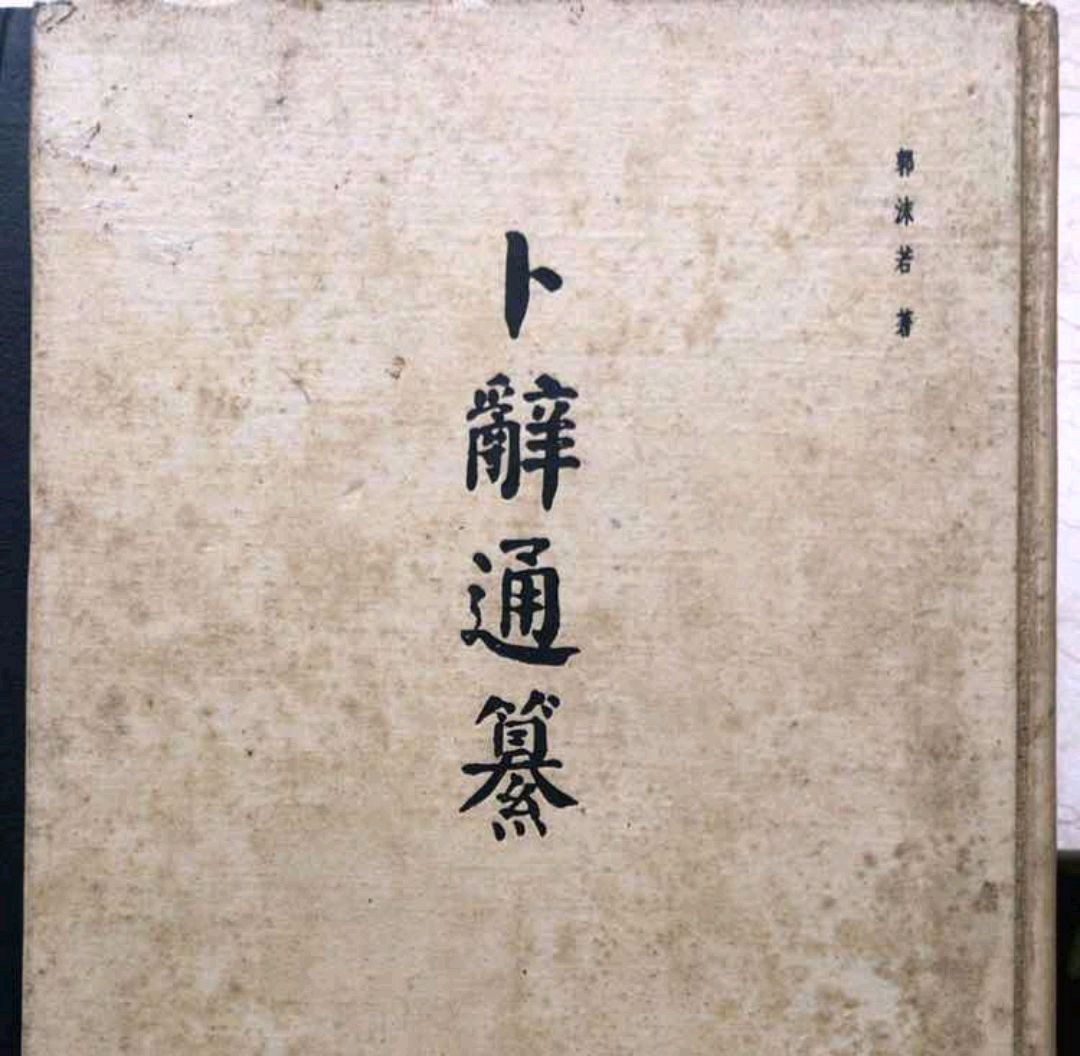 郭沫若 著
卜辭通纂